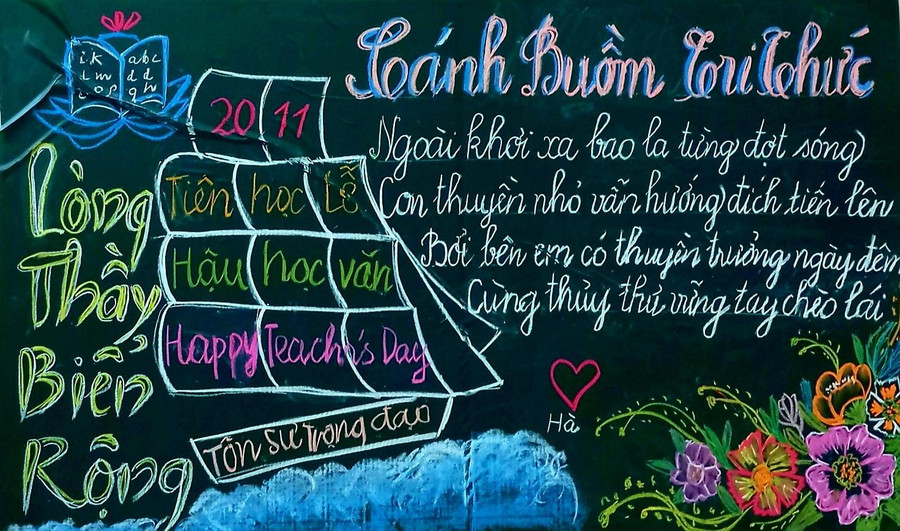 Cánh Buồm Tri Thức
i k abc
l m d d
i o p g h
20 11
Ngoài khơi xa bao la từng đợt sóng
Con thuyền nhỏ vẫn hướng đích tiến lên
Bởi bên em có thuyền trưởng ngày đêm
Cùng thủy thủ vững tay chèo lái
Lòng
Thầy
Biển
Rộng
Tiên học Lễ
Hậu học văn
Happy Teacher's Day
Tôn Sư trọng đạo
Hà